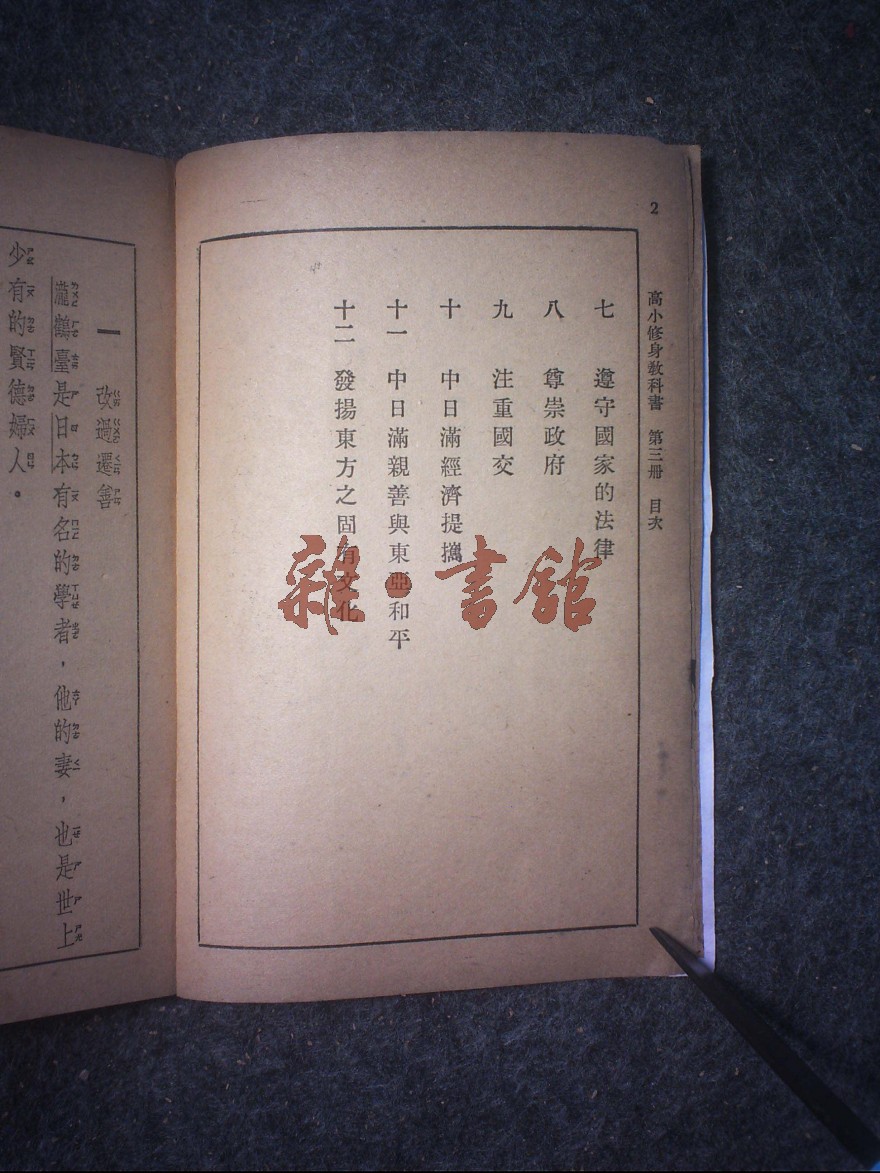 2
高小修身教科書　第三冊　目次
七　遵守國家的法律
八　尊崇政府
九　注重國交
十　中日滿經濟提攜
十一　中日滿親善與東亞和平
十二　發揚東方之固有文化
雜·書館
一　改過遷善
瀧鶴臺是日本有名的學者，他的妻，也是世上
少有的賢德婦人。